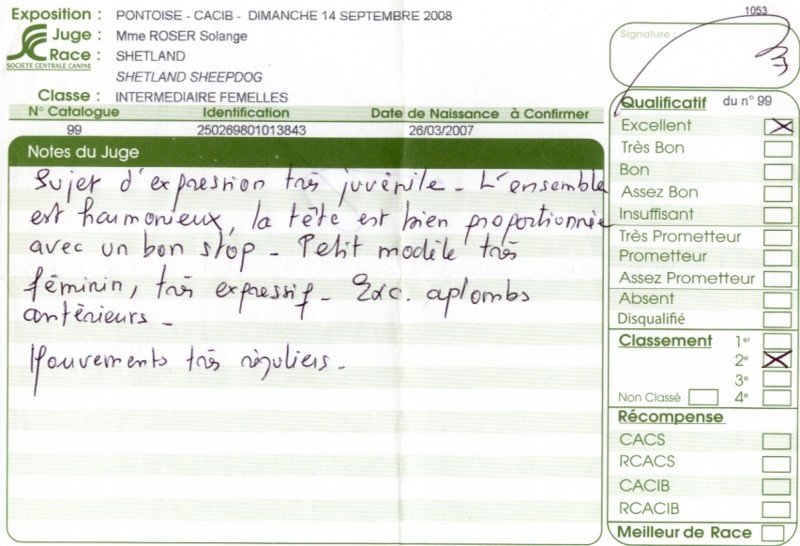 Exposition : PONTOISE - CACIB - DIMANCHE 14 SEPTEMBRE 2008
Juge : Mme ROSER Solange
Race : SHETLAND
SOCIETE CENTRALE CANINE
SHETLAND SHEEPDOG
Classe : INTERMEDIAIRE FEMELLES
N° Catalogue Identification Date de Naissance à Confirmer
99 250269801013843 26/03/2007
Notes du Juge
Sujet d'expression très juvénile - L'ensemble
est harmonieux, la tête est bien proportionnée
avec un bon stop - Petit modèle très
féminin, très expressif - Exc. aplombs
antérieurs -
Mouvements très réguliers -
1053
Signature :
Qualificatif du n° 99
Excellent
Très Bon
Bon
Assez Bon
Insuffisant
Très Prometteur
Prometteur
Assez Prometteur
Absent
Disqualifié
Classement 1er
2e
3e
Non Classé 4e
Récompense
CACS
RCACS
CACIB
RCACIB
Meilleur de Race